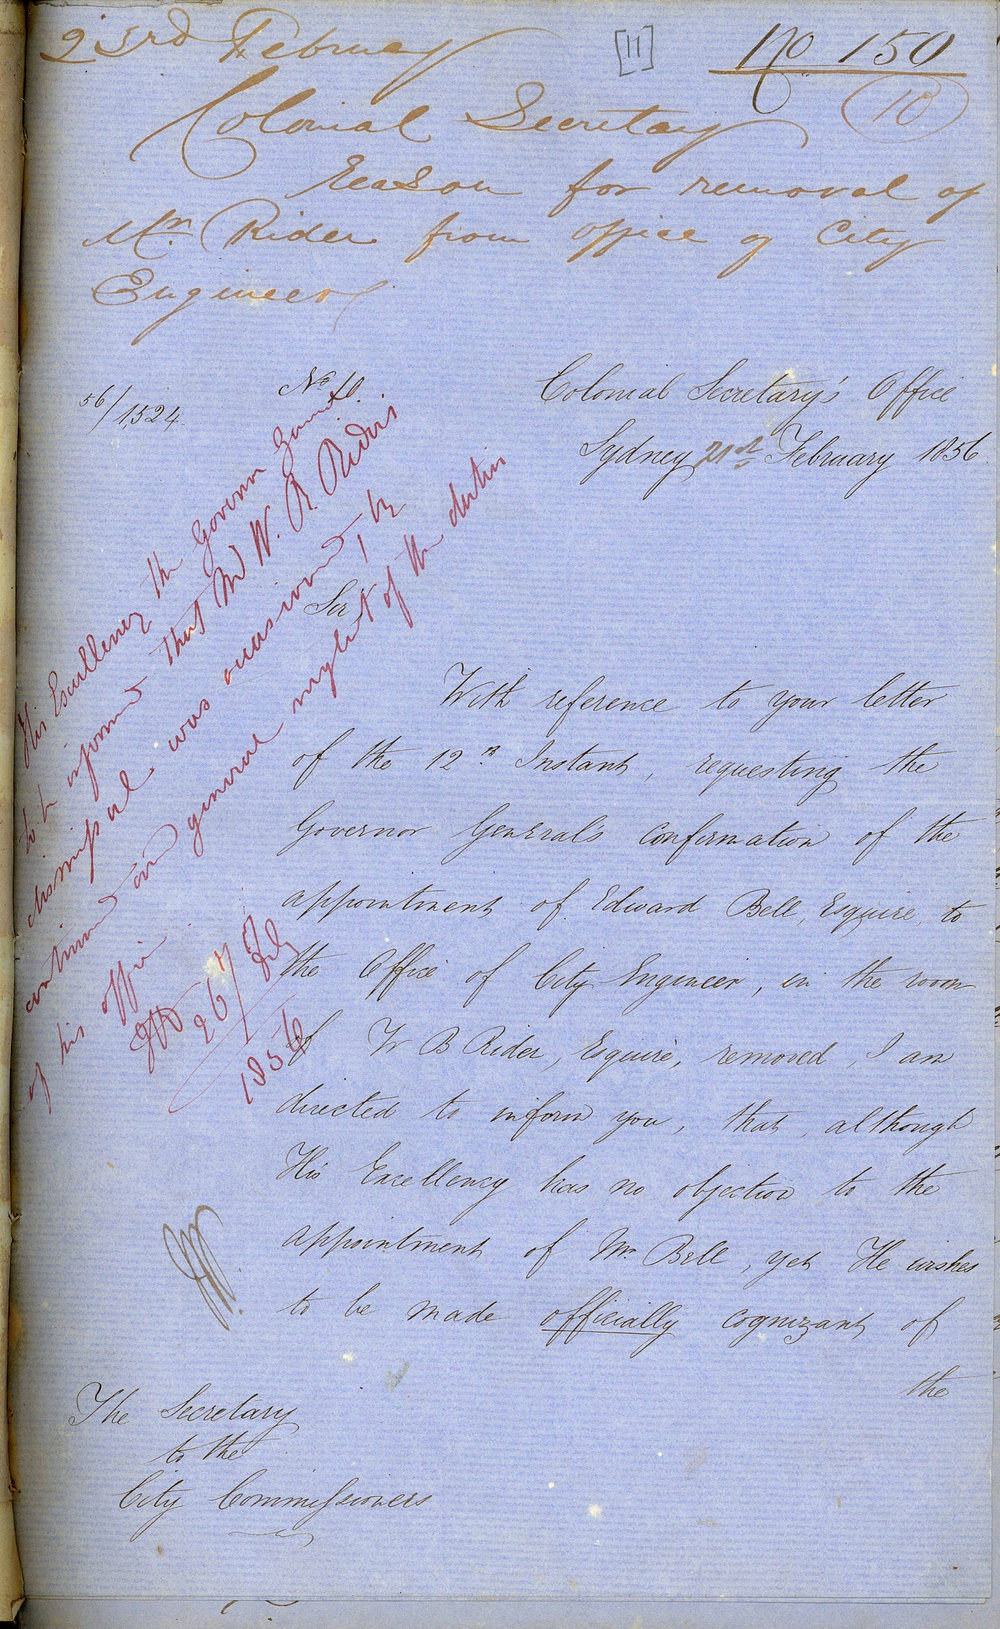 23rd February
[11]
No 150
10
Colonial Secretary
Reason for removal of
Mr. Rider from office of City
Engineer
56/1524
No 10.
Colonial Secretary's Office
Sydney 21st February 1856
Sir
With reference to your letter
of the 12th Instant, requesting the
Governor General's confirmation of the
appointment of Edward Bell, Esquire, to
the Office of City Engineer, in the room
of W B Rider, Esquire, removed, I am
directed to inform you, that, although
His Excellency has no objection to the
appointment of Mr. Bell, yet He wishes
to be made officially cognizant of
the
The Secretary
to the
City Commissioners
His Excellency the Governor General
to be informed that Mr W. B Rider's
dismissal was occasioned by
continued and general neglect of the duties
of his office
26 Feby
1856